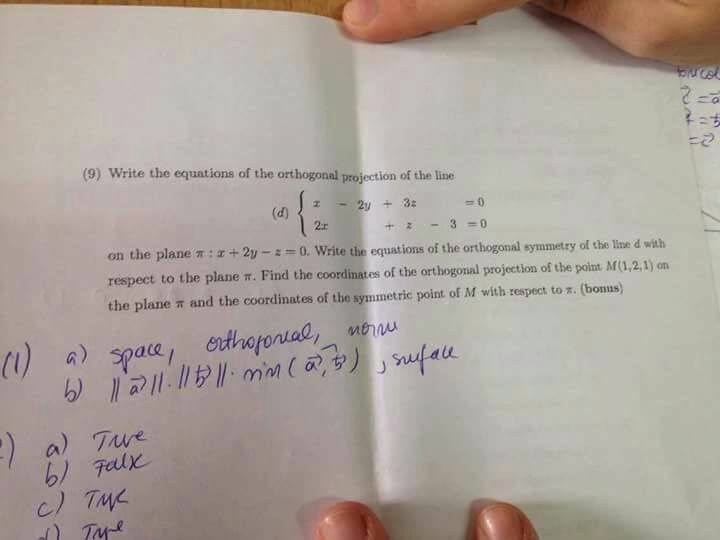 (9) Write the equations of the orthogonal projection of the line
(d) { x - 2y + 3z = 0
2x + z - 3 = 0
on the plane π : x + 2y − z = 0. Write the equations of the orthogonal symmetry of the line d with
respect to the plane π. Find the coordinates of the orthogonal projection of the point M(1,2,1) on
the plane π and the coordinates of the symmetric point of M with respect to π. (bonus)
(1) a) space, orthogonal, norm
b) ||a⃗||·||b⃗||·sin(a⃗,b⃗), surface
a) True
b) False
c) True
d) True